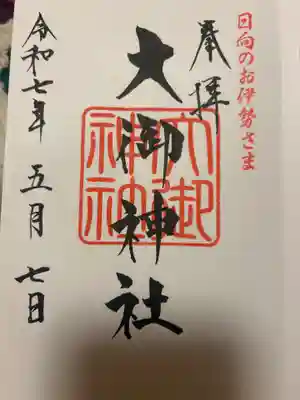 日向のお伊勢さま
奉拝
大御神社
大御神社
令和七年 五月 七日